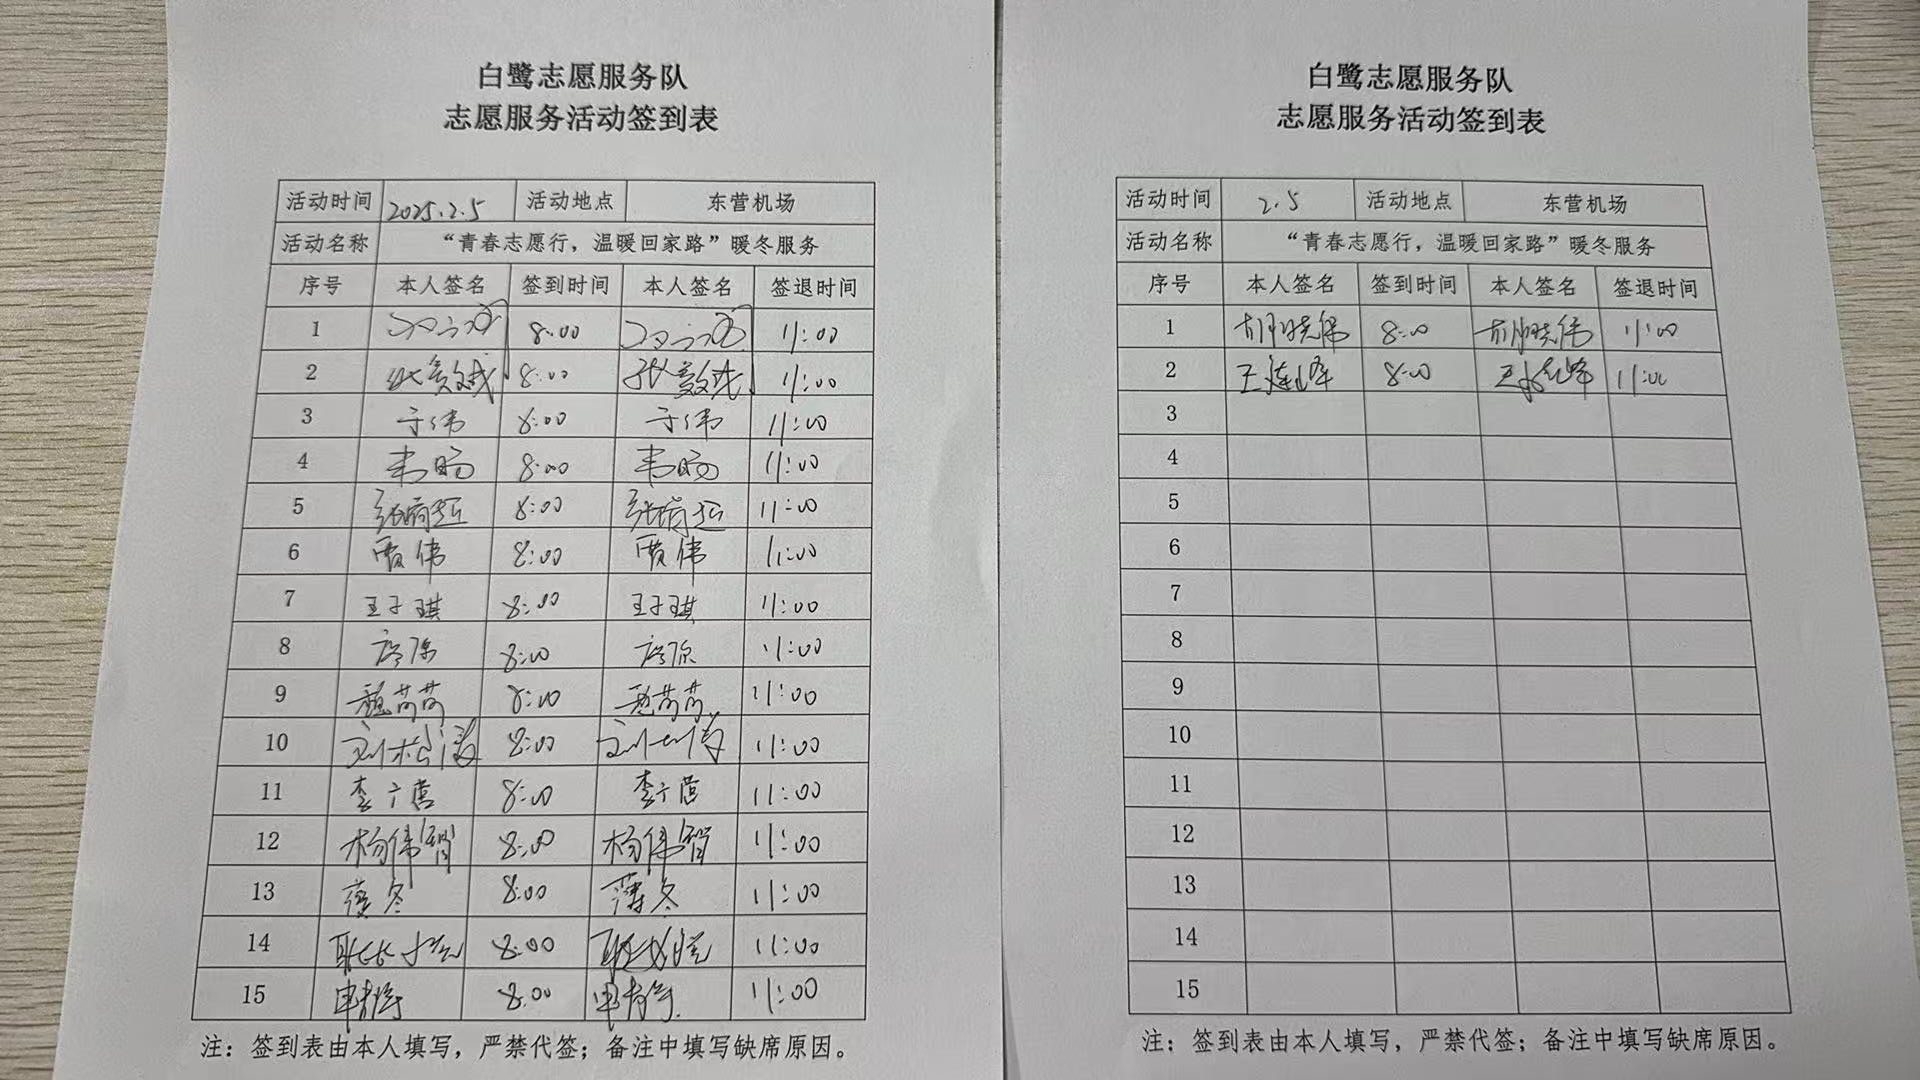 白鹭志愿服务队
志愿服务活动签到表
活动时间 2025.2.5 活动地点 东营机场
活动名称 “青春志愿行，温暖回家路”暖冬服务
序号 本人签名 签到时间 本人签名 签退时间
1 8:00 11:00
2 8:00 11:00
3 于伟 8:00 于伟 11:00
4 韦旸 8:00 韦旸 11:00
5 8:00 11:00
6 贾伟 8:00 贾伟 11:00
7 王子琪 8:00 王子琪 11:00
8 8:00 11:00
9 8:00 11:00
10 刘松涛 8:00 11:00
11 李广营 8:00 李广营 11:00
12 杨伟智 8:00 杨伟智 11:00
13 薄冬 8:00 薄冬 11:00
14 8:00 11:00
15 8:00 11:00
注：签到表由本人填写，严禁代签；备注中填写缺席原因。
白鹭志愿服务队
志愿服务活动签到表
活动时间 2.5 活动地点 东营机场
活动名称 “青春志愿行，温暖回家路”暖冬服务
序号 本人签名 签到时间 本人签名 签退时间
1 8:00 11:00
2 8:00 11:00
3
4
5
6
7
8
9
10
11
12
13
14
15
注：签到表由本人填写，严禁代签；备注中填写缺席原因。